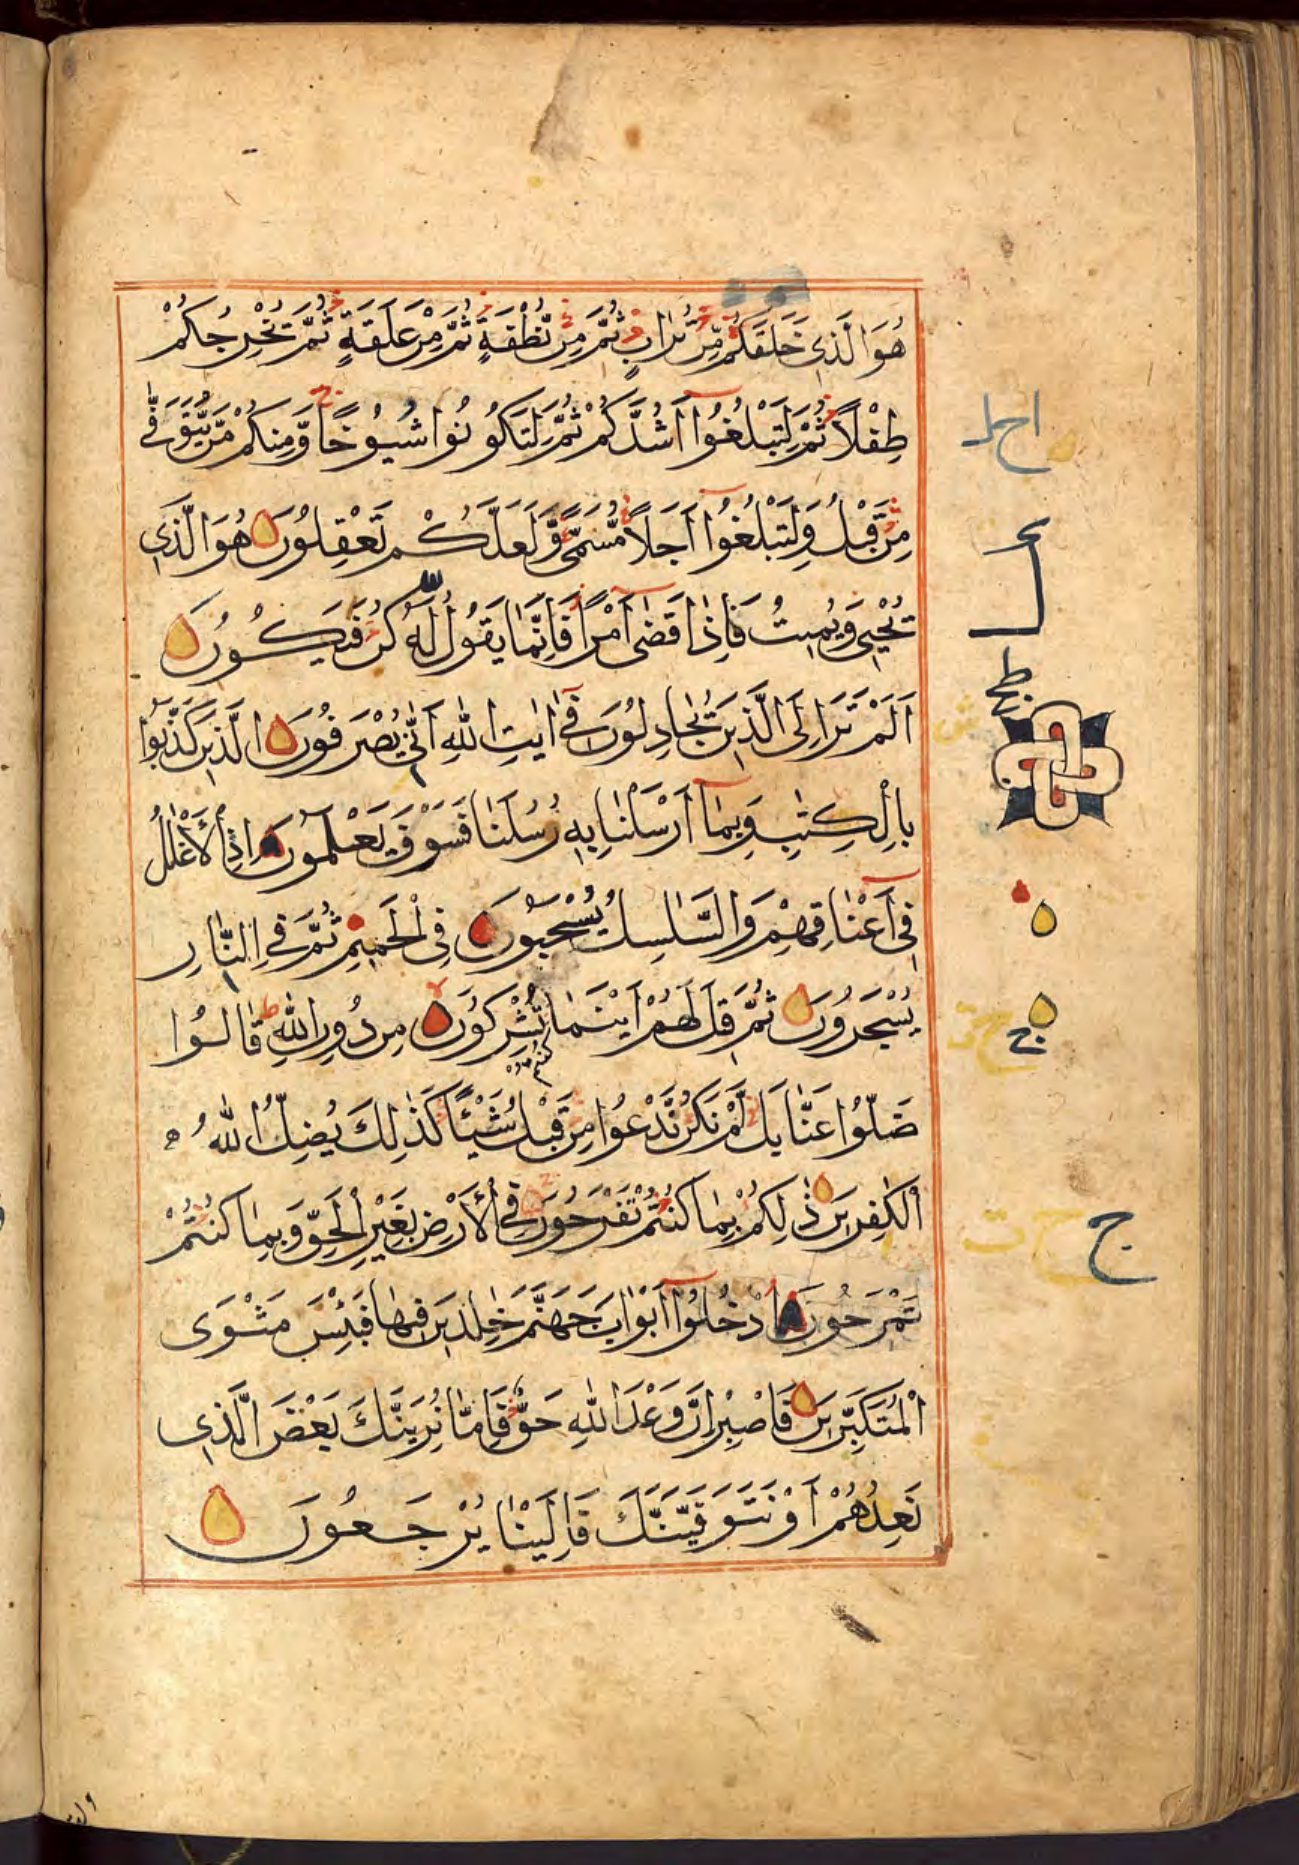 هُوَ الَّذِي خَلَقَكُمْ مِّنْ تُرَابٍ ثُمَّ مِنْ نُّطْفَةٍ ثُمَّ مِنْ عَلَقَةٍ ثُمَّ يُخْرِجُكُمْ
طِفْلًا ثُمَّ لِتَبْلُغُوا أَشُدَّكُمْ ثُمَّ لِتَكُونُوا شُيُوخًا وَّمِنكُمْ مَّنْ يُّتَوَفّٰى
مِنْ قَبْلُ وَلِتَبْلُغُوا أَجَلًا مُّسَمًّى وَّلَعَلَّكُمْ تَعْقِلُونَ هُوَ الَّذِي
يُحْيِي وَيُمِيتُ فَإِذَا قَضٰى أَمْرًا فَإِنَّمَا يَقُولُ لَهُ كُنْ فَيَكُونُ
أَلَمْ تَرَ إِلَى الَّذِينَ يُجَادِلُونَ فِي اٰيٰتِ اللهِ أَنّٰى يُصْرَفُونَ الَّذِينَ كَذَّبُوا
بِالْكِتٰبِ وَبِمَا أَرْسَلْنَا بِهِ رُسُلَنَا فَسَوْفَ يَعْلَمُونَ إِذِ الْأَغْلٰلُ
فِي أَعْنَاقِهِمْ وَالسَّلٰسِلُ يُسْحَبُونَ فِي الْحَمِيمِ ثُمَّ فِي النَّارِ
يُسْجَرُونَ ثُمَّ قِيلَ لَهُمْ أَيْنَمَا كُنتُمْ تُشْرِكُونَ مِنْ دُونِ اللهِ قَالُوا
ضَلُّوا عَنَّا بَلْ لَّمْ نَكُنْ نَّدْعُوا مِنْ قَبْلُ شَيْئًا كَذٰلِكَ يُضِلُّ اللهُ
الْكٰفِرِينَ ذٰلِكُمْ بِمَا كُنتُمْ تَفْرَحُونَ فِي الْأَرْضِ بِغَيْرِ الْحَقِّ وَبِمَا كُنتُمْ
تَمْرَحُونَ ادْخُلُوا أَبْوَابَ جَهَنَّمَ خٰلِدِينَ فِيهَا فَبِئْسَ مَثْوَى
الْمُتَكَبِّرِينَ فَاصْبِرْ إِنَّ وَعْدَ اللهِ حَقٌّ فَإِمَّا نُرِيَنَّكَ بَعْضَ الَّذِي
نَعِدُهُمْ أَوْ نَتَوَفَّيَنَّكَ فَإِلَيْنَا يُرْجَعُونَ